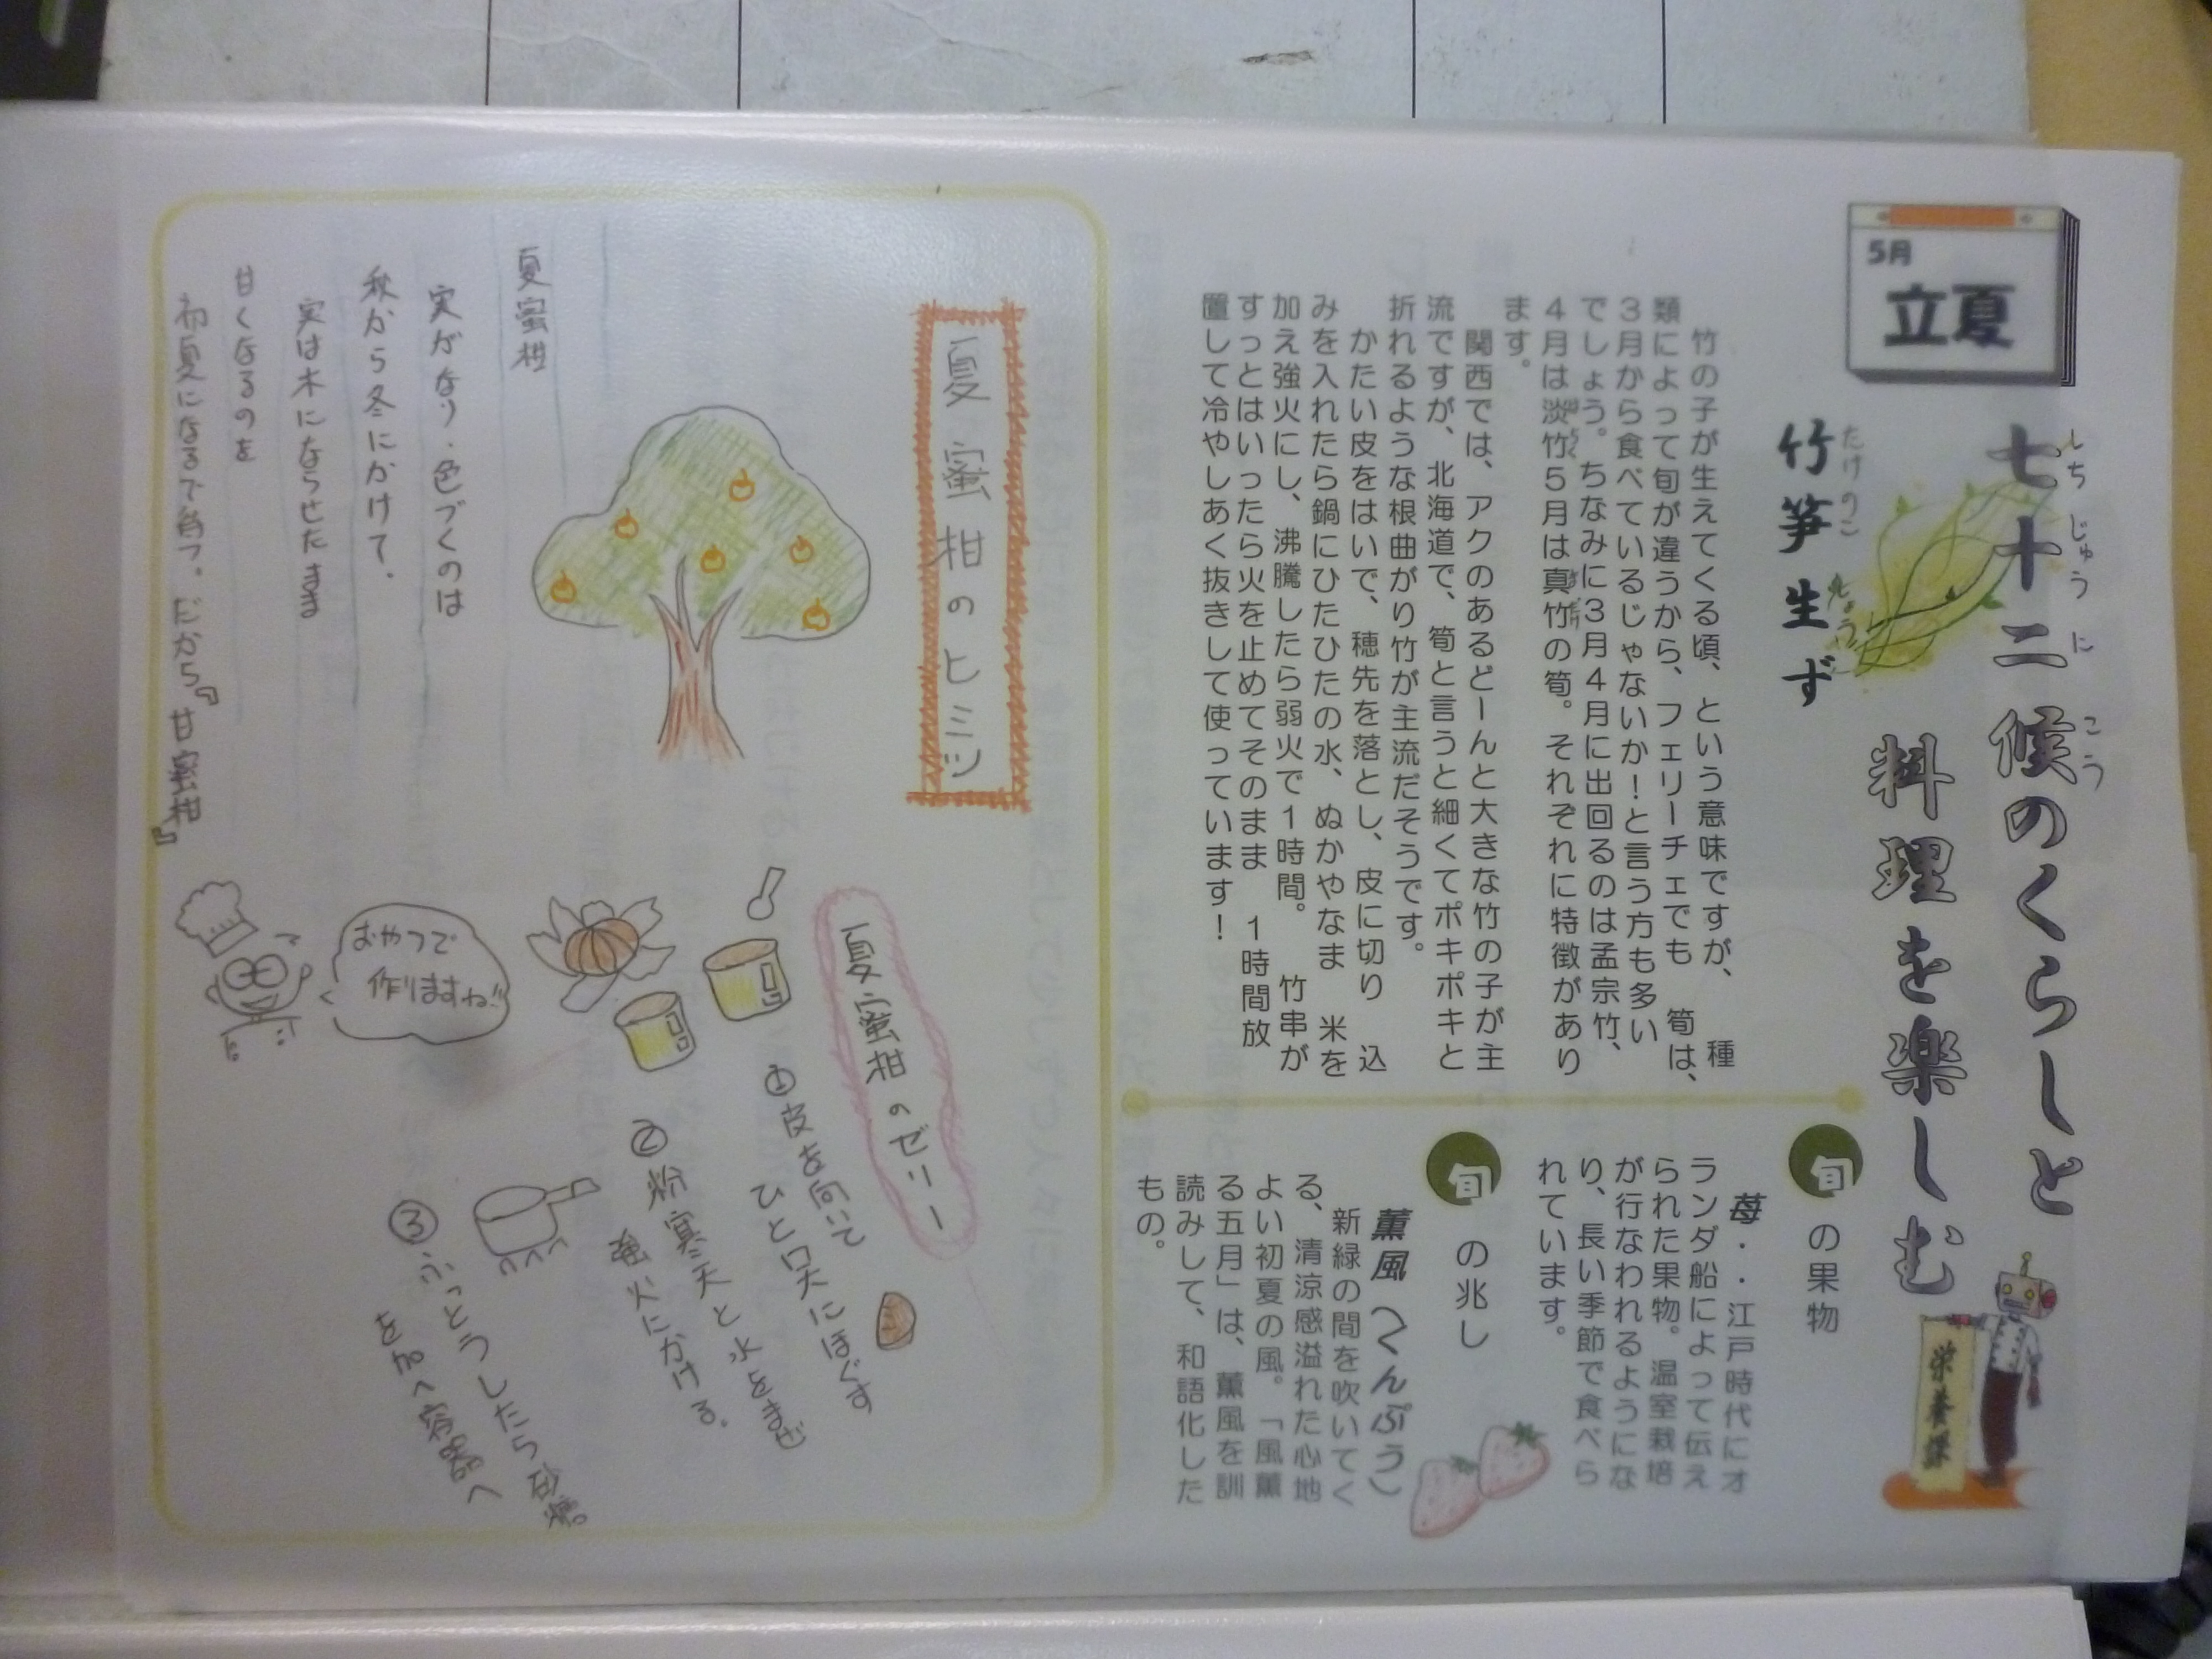 5月
立夏
七十二候のくらしと
しちじゅうにこう
料理を楽しむ
栄養課
竹笋生ず
たけのこしょう
竹の子が生えてくる頃、という意味ですが、 種
類によって旬が違うから、フェリーチェでも 筍は、
3月から食べているじゃないか!と言う方も多い
でしょう。ちなみに3月4月に出回るのは孟宗竹、
4月は淡竹5月は真竹の筍。それぞれに特徴があり
ます。
関西では、アクのあるどーんと大きな竹の子が主
流ですが、北海道で、筍と言うと細くてポキポキと
折れるような根曲がり竹が主流だそうです。
かたい皮をはいで、穂先を落とし、皮に切り 込
みを入れたら鍋にひたひたの水、ぬかやなま 米を
加え強火にし、沸騰したら弱火で1時間。 竹串が
すっとはいったら火を止めてそのまま 1時間放
置して冷やしあく抜きして使っています!
旬の果物
苺・・江戸時代にオ
ランダ船によって伝え
られた果物。温室栽培
が行なわれるようにな
り、長い季節で食べら
れています。
旬の兆し
薫風(くんぷう)
新緑の間を吹いてく
る、清涼感溢れた心地
よい初夏の風。「風薫
る五月」は、薫風を訓
読みして、和語化した
もの。
夏蜜柑のヒミツ
夏蜜柑
実がなり、色づくのは
秋から冬にかけて、
実は木にならせたまま
甘くなるのを
初夏になるまで待つ。だから『甘蜜柑』
夏蜜柑のゼリー
①皮を向いて
ひと口大にほぐす
②粉寒天と水をまぜ
強火にかける。
③ふっとうしたら砂糖
を加へ容器へ
おやつで
作りますね!!